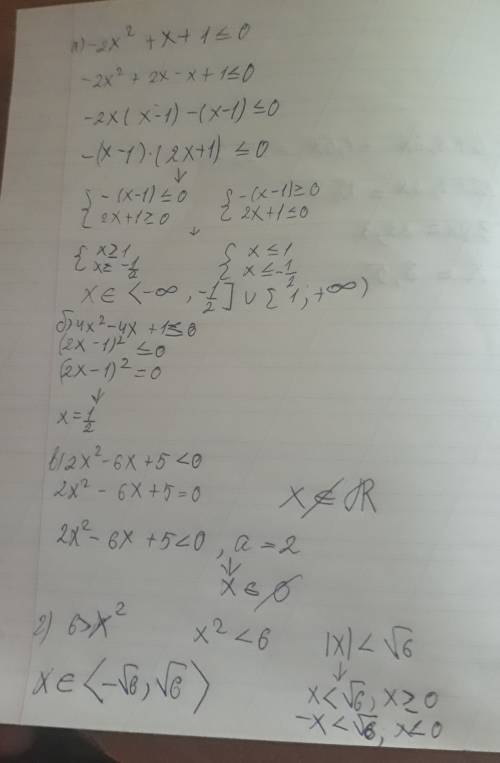 а) -2x² + x + 1 ≤ 0
-2x² + 2x - x + 1 ≤ 0
-2x(x-1) - (x-1) ≤ 0
-(x-1)·(2x+1) ≤ 0
↓
{ -(x-1) ≤ 0 { -(x-1) ≥ 0
{ 2x+1 ≥ 0 { 2x+1 ≤ 0
↓
{ x ≥ 1 { x ≤ 1
{ x ≥ -1/2 { x ≤ -1/2
x ∈ ⟨-∞, -1/2] ∪ [1; +∞)
б) 4x² - 4x + 1 ≤ 0
(2x-1)² ≤ 0
(2x-1)² = 0
↓
x = 1/2
в) 2x² - 6x + 5 < 0
2x² - 6x + 5 = 0 x ∉ R
2x² - 6x + 5 < 0, a = 2
↓
x ∈ ∅
г) 6 > x² x² < 6 |x| < √6
↓
x ∈ ⟨-√6, √6⟩ x < √6, x ≥ 0
-x < √6, x < 0